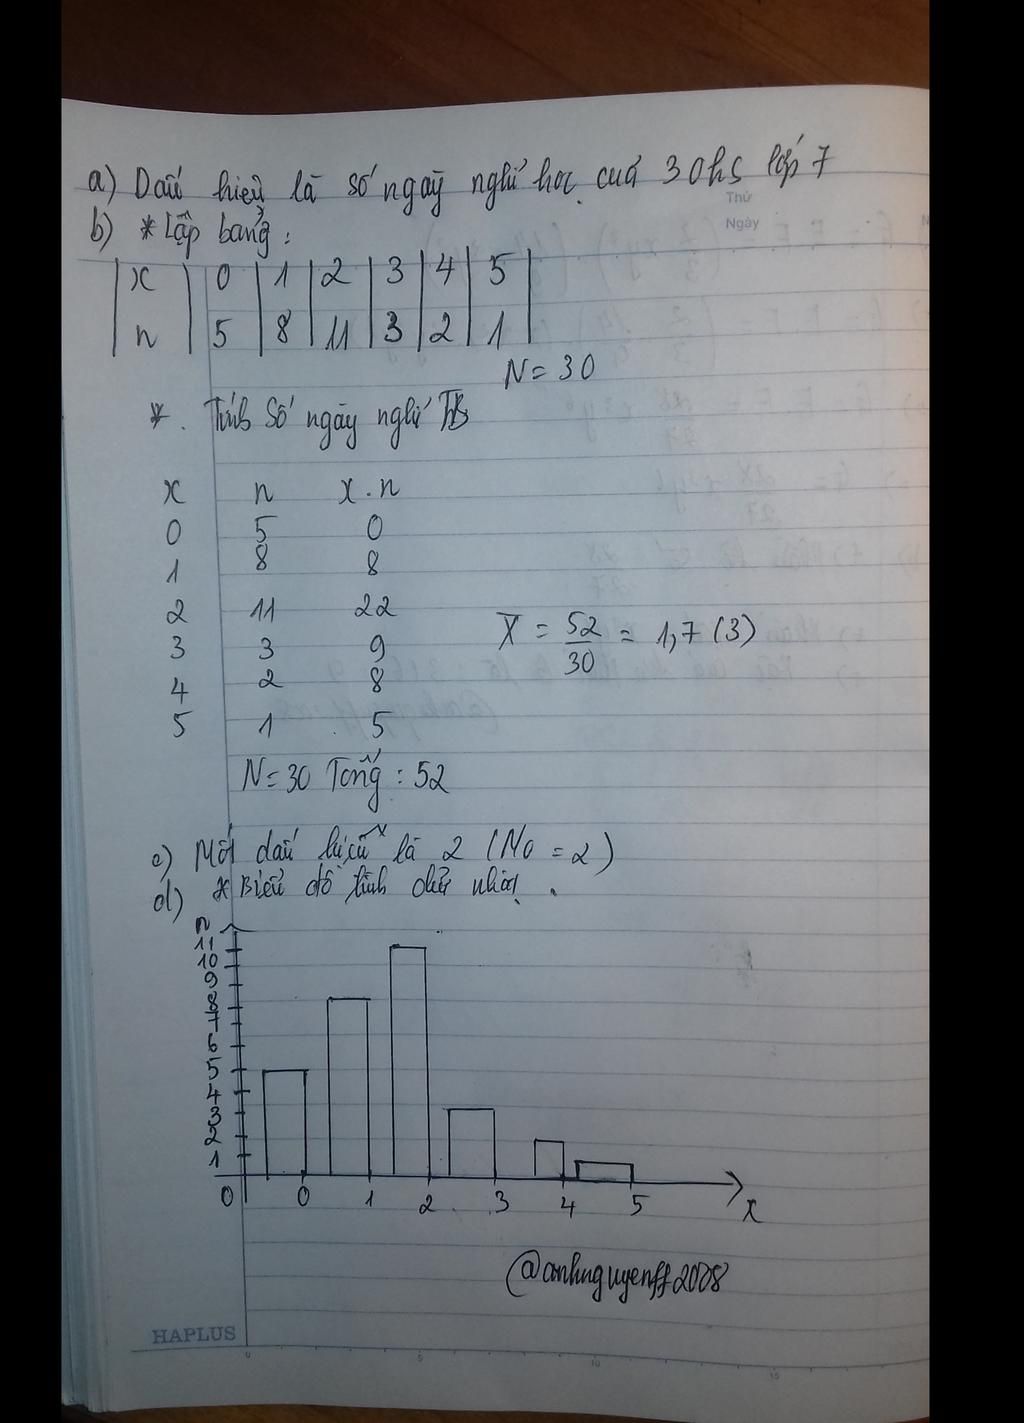 a) Dấu hiệu là số ngày nghỉ học của 30hs lớp 7
Thứ
Ngày
b) * Lập bảng:
x 0 1 2 3 4 5
n 5 8 11 3 2 1
N = 30
*. Tính số ngày nghỉ TB
x n x.n
0 5 0
1 8 8
2 11 22
3 3 9
4 2 8
5 1 5
X̄ = 52/30 = 1,7(3)
N = 30 Tổng: 52
c) Mốt dấu hiệu x là 2 (Mo = 2)
d) * Biểu đồ hình chữ nhật.
n
11
10
9
8
7
6
5
4
3
2
1
0 0 1 2 3 4 5 x
@anhnguyenff2008
HAPLUS
0 5 10 15